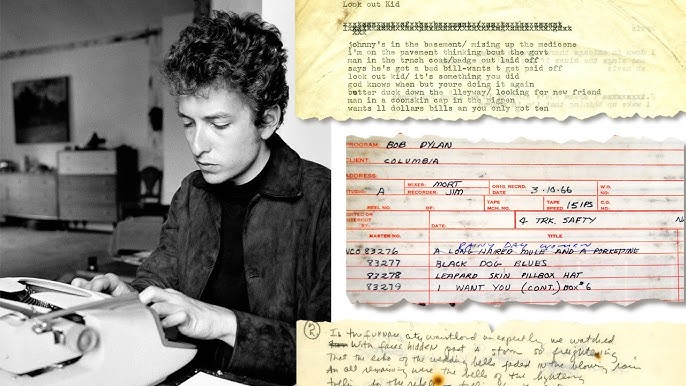 Look out Kid
johnny's in the basement/ mixing up the medicene
i'm on the pavement thinking bout the govt
man in the trnch coat/badge out laid off
says he's got a bad bill-wants t get paid off
look out kid/ it's something you did
god knows when but youre doing it again
better duck down the alleyway/ looking for new friend
man in a coonskin cap in the pigpen
wants 11 dollars bills an you only got ten
PROGRAM: BOB DYLAN
CLIENT: COLUMBIA
ADDRESS:
STUDIO: A MIXER: MORT RECORDER: JIM ORIG. RECRD. DATE 3-10-66 W.O. NO.
REEL NO. OF: TAPE MCH. NO. TAPE SPEED 15 IPS C.O. NO.
EDITED OR INTERCUT BY DATE: 4 TRK. SAFTY
MASTER NO. TITLE
RAINY DAY WOMEN
NCO 83276 A LONG HAIRED MULE AND A PORKEPINE
83277 BLACK DOG BLUES
83278 LEAPARD SKIN PILLBOX HAT
83279 I WANT YOU (CONT.) BOX #6
2
In the city we watched
With faces hidden
That the echo of the wedding bells faded in the blowing rain
An all remaining were the bells of the lightning